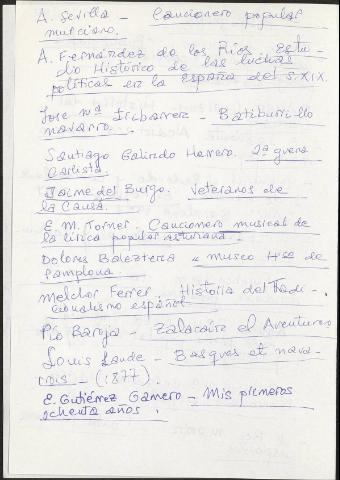 A. Sevilla - Cancionero popular
murciano.
A. Fernández de los Ríos. Estu-
dio Histórico de las luchas
políticas en la España del S. XIX.
Jose Mª Iribarren - Batiburrillo
navarro.
Santiago Galindo Herrero. 2ª guerra
carlista.
Jaime del Burgo. Veteranos de
la Causa.
E. M. Torner. Cancionero musical de
la lírica popular asturiana.
Dolores Baleztena " Museo Hco de
Pamplona
Melchor Ferrer. Historia del Tradi-
cionalismo español
Pío Baroja - Zalacaín el Aventurero
Louis Lande - Basques et nava-
rrois - (1877).
E. Gutiérrez Gamero - Mis primeros
ochenta años.